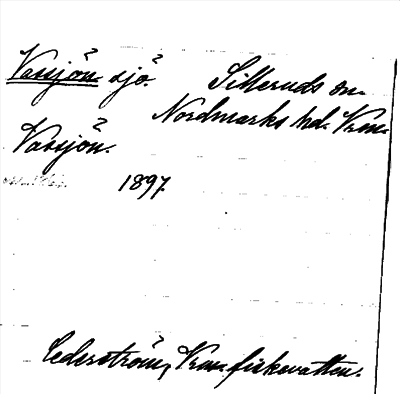 Vassjön sjö. Silleruds sn.
Nordmarks hd. Vrm.
Vassjön.
1897.
Cederström, Vrm. fiskevatten.